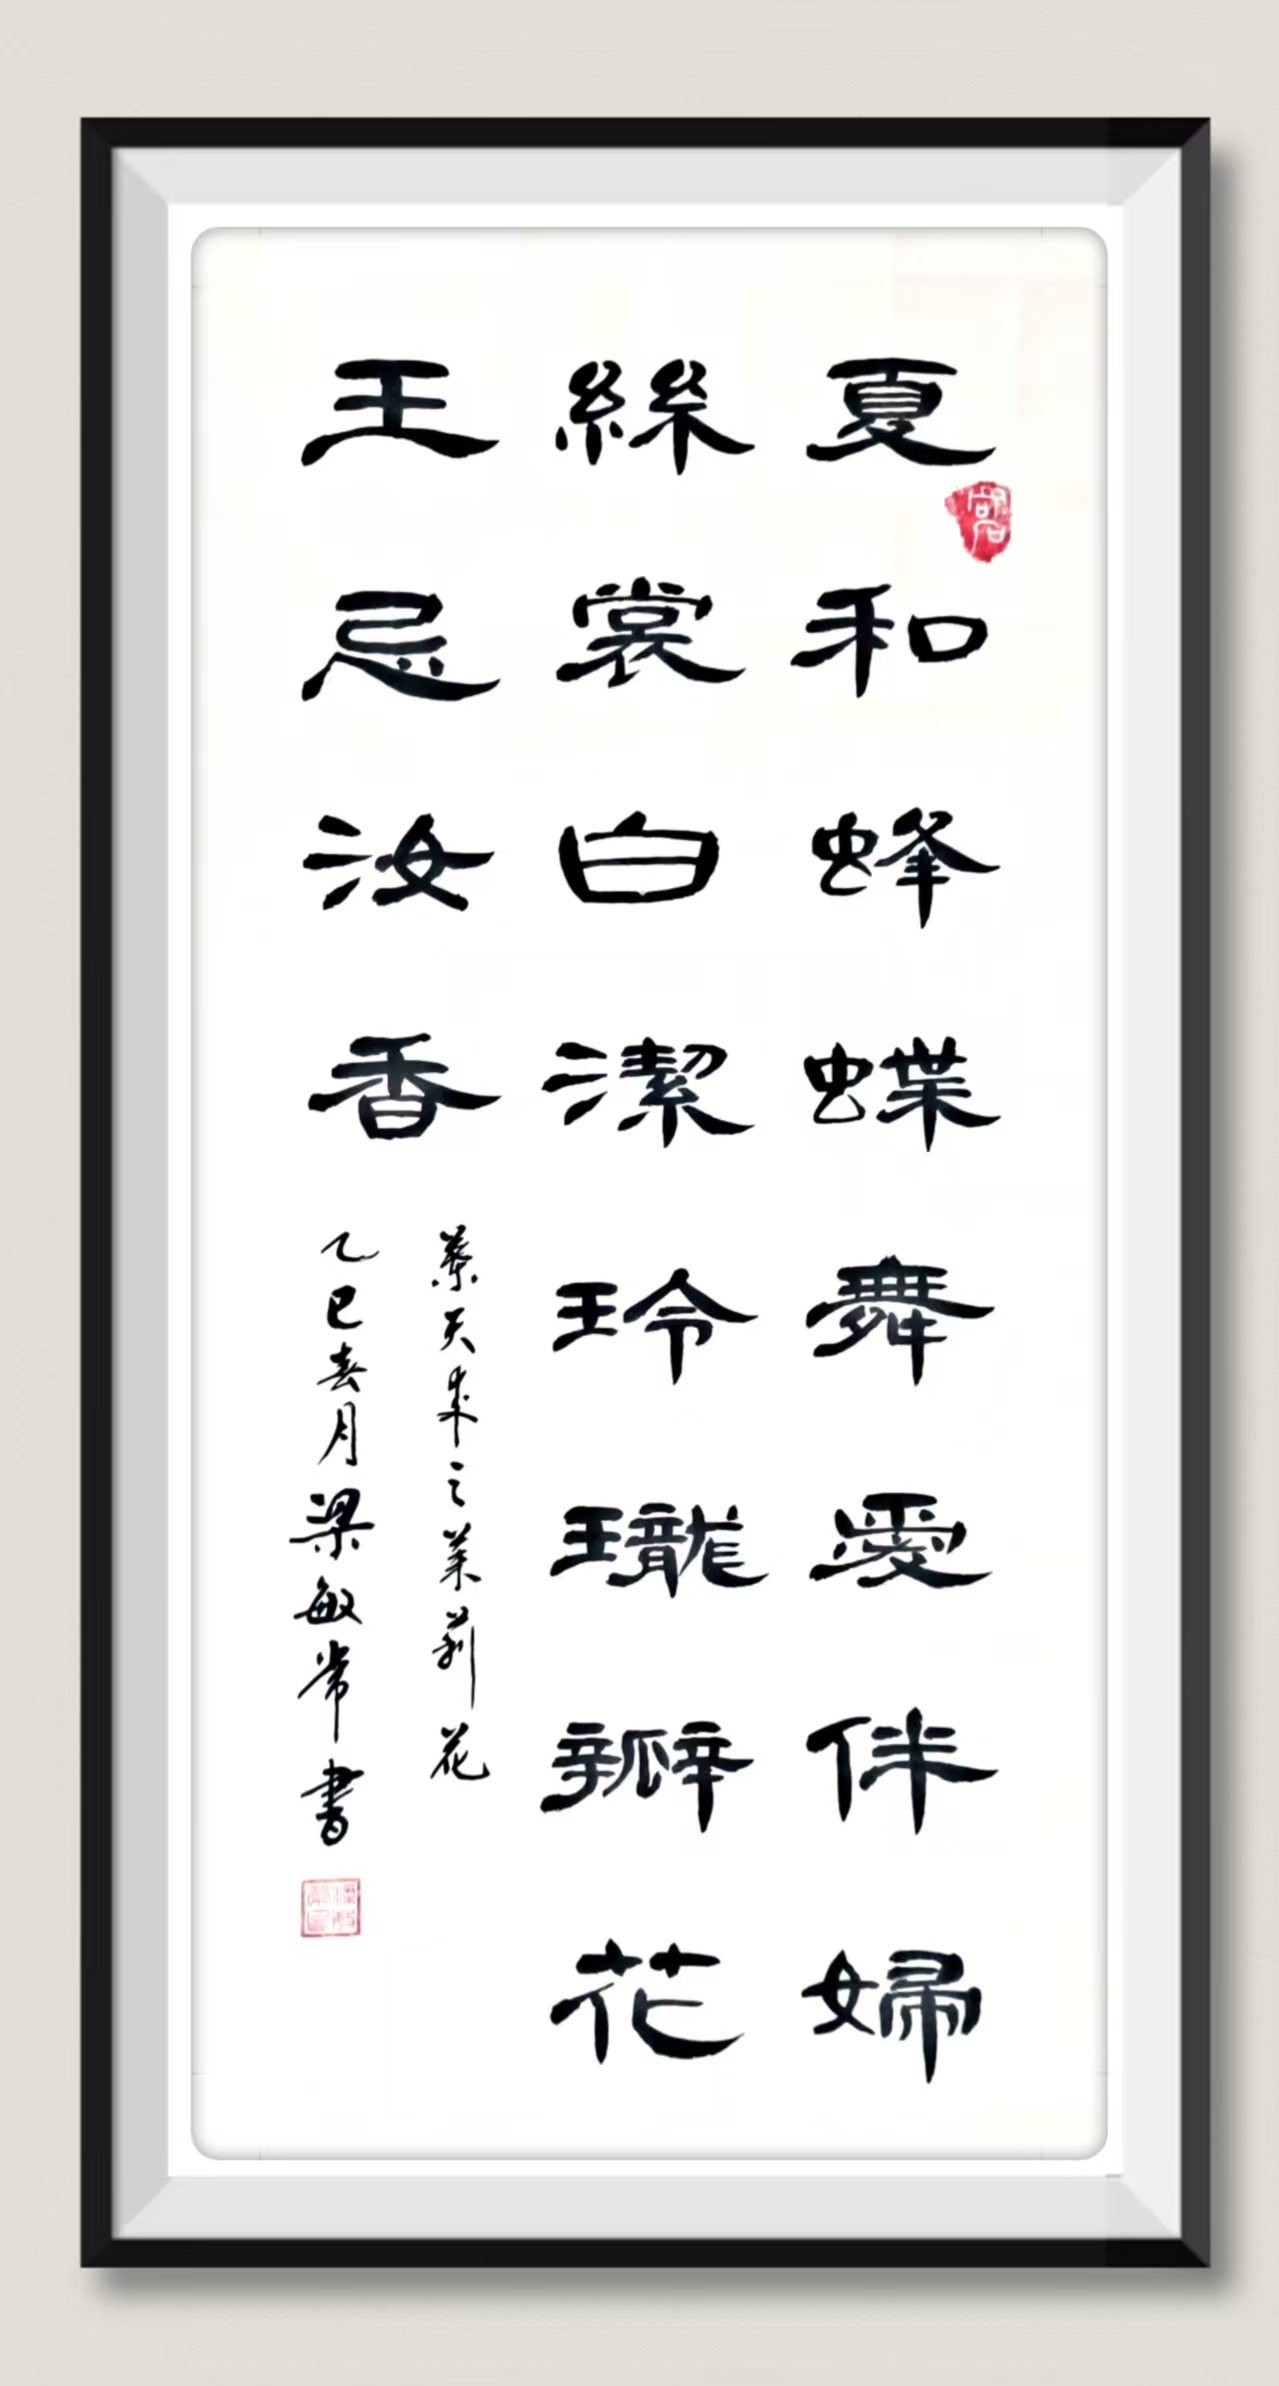 夏和蜂蝶舞愛伴婦
絲裳白潔玲瓏瓣花
王忌汝香
葉天来之茉莉花
乙巳春月梁敏常書